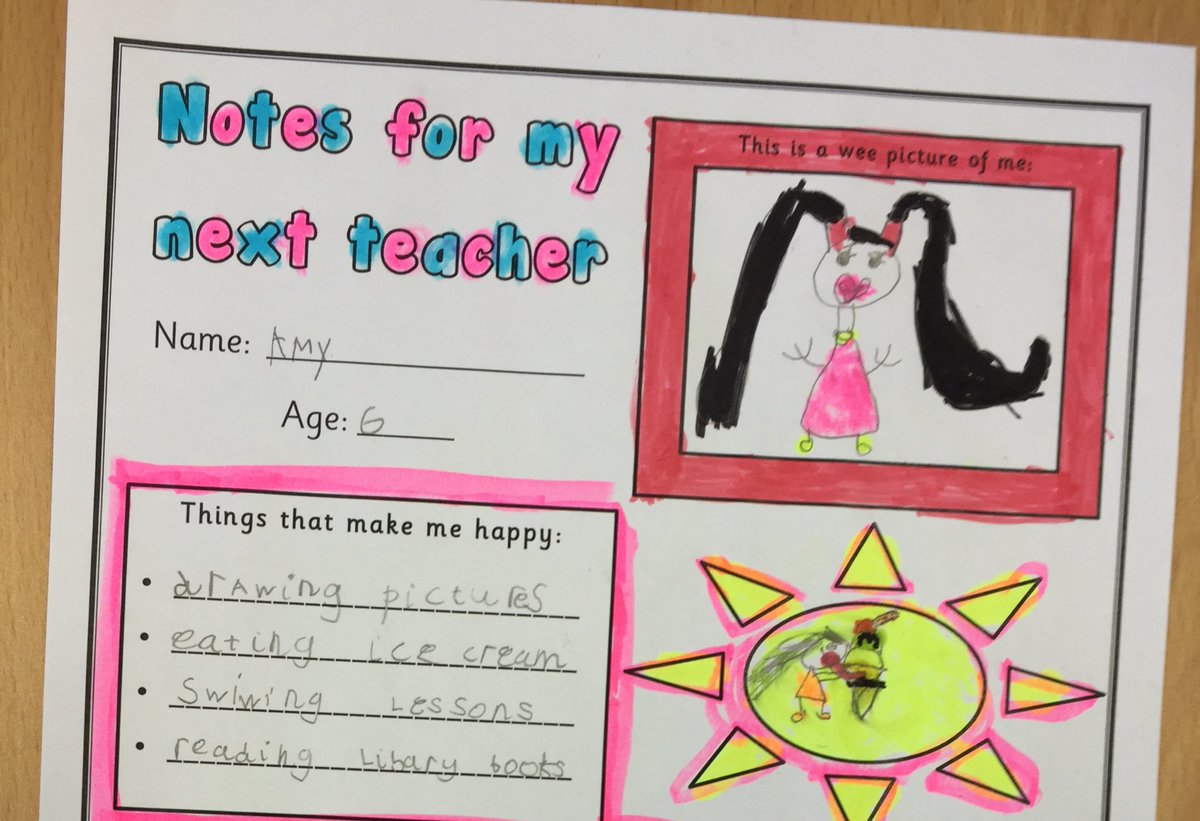 Notes for my
next teacher
Name: AMY
Age: 6
This is a wee picture of me:
Things that make me happy:
• drawing pictures
• eating ice cream
• swiwing Lessons
• reading Libary books